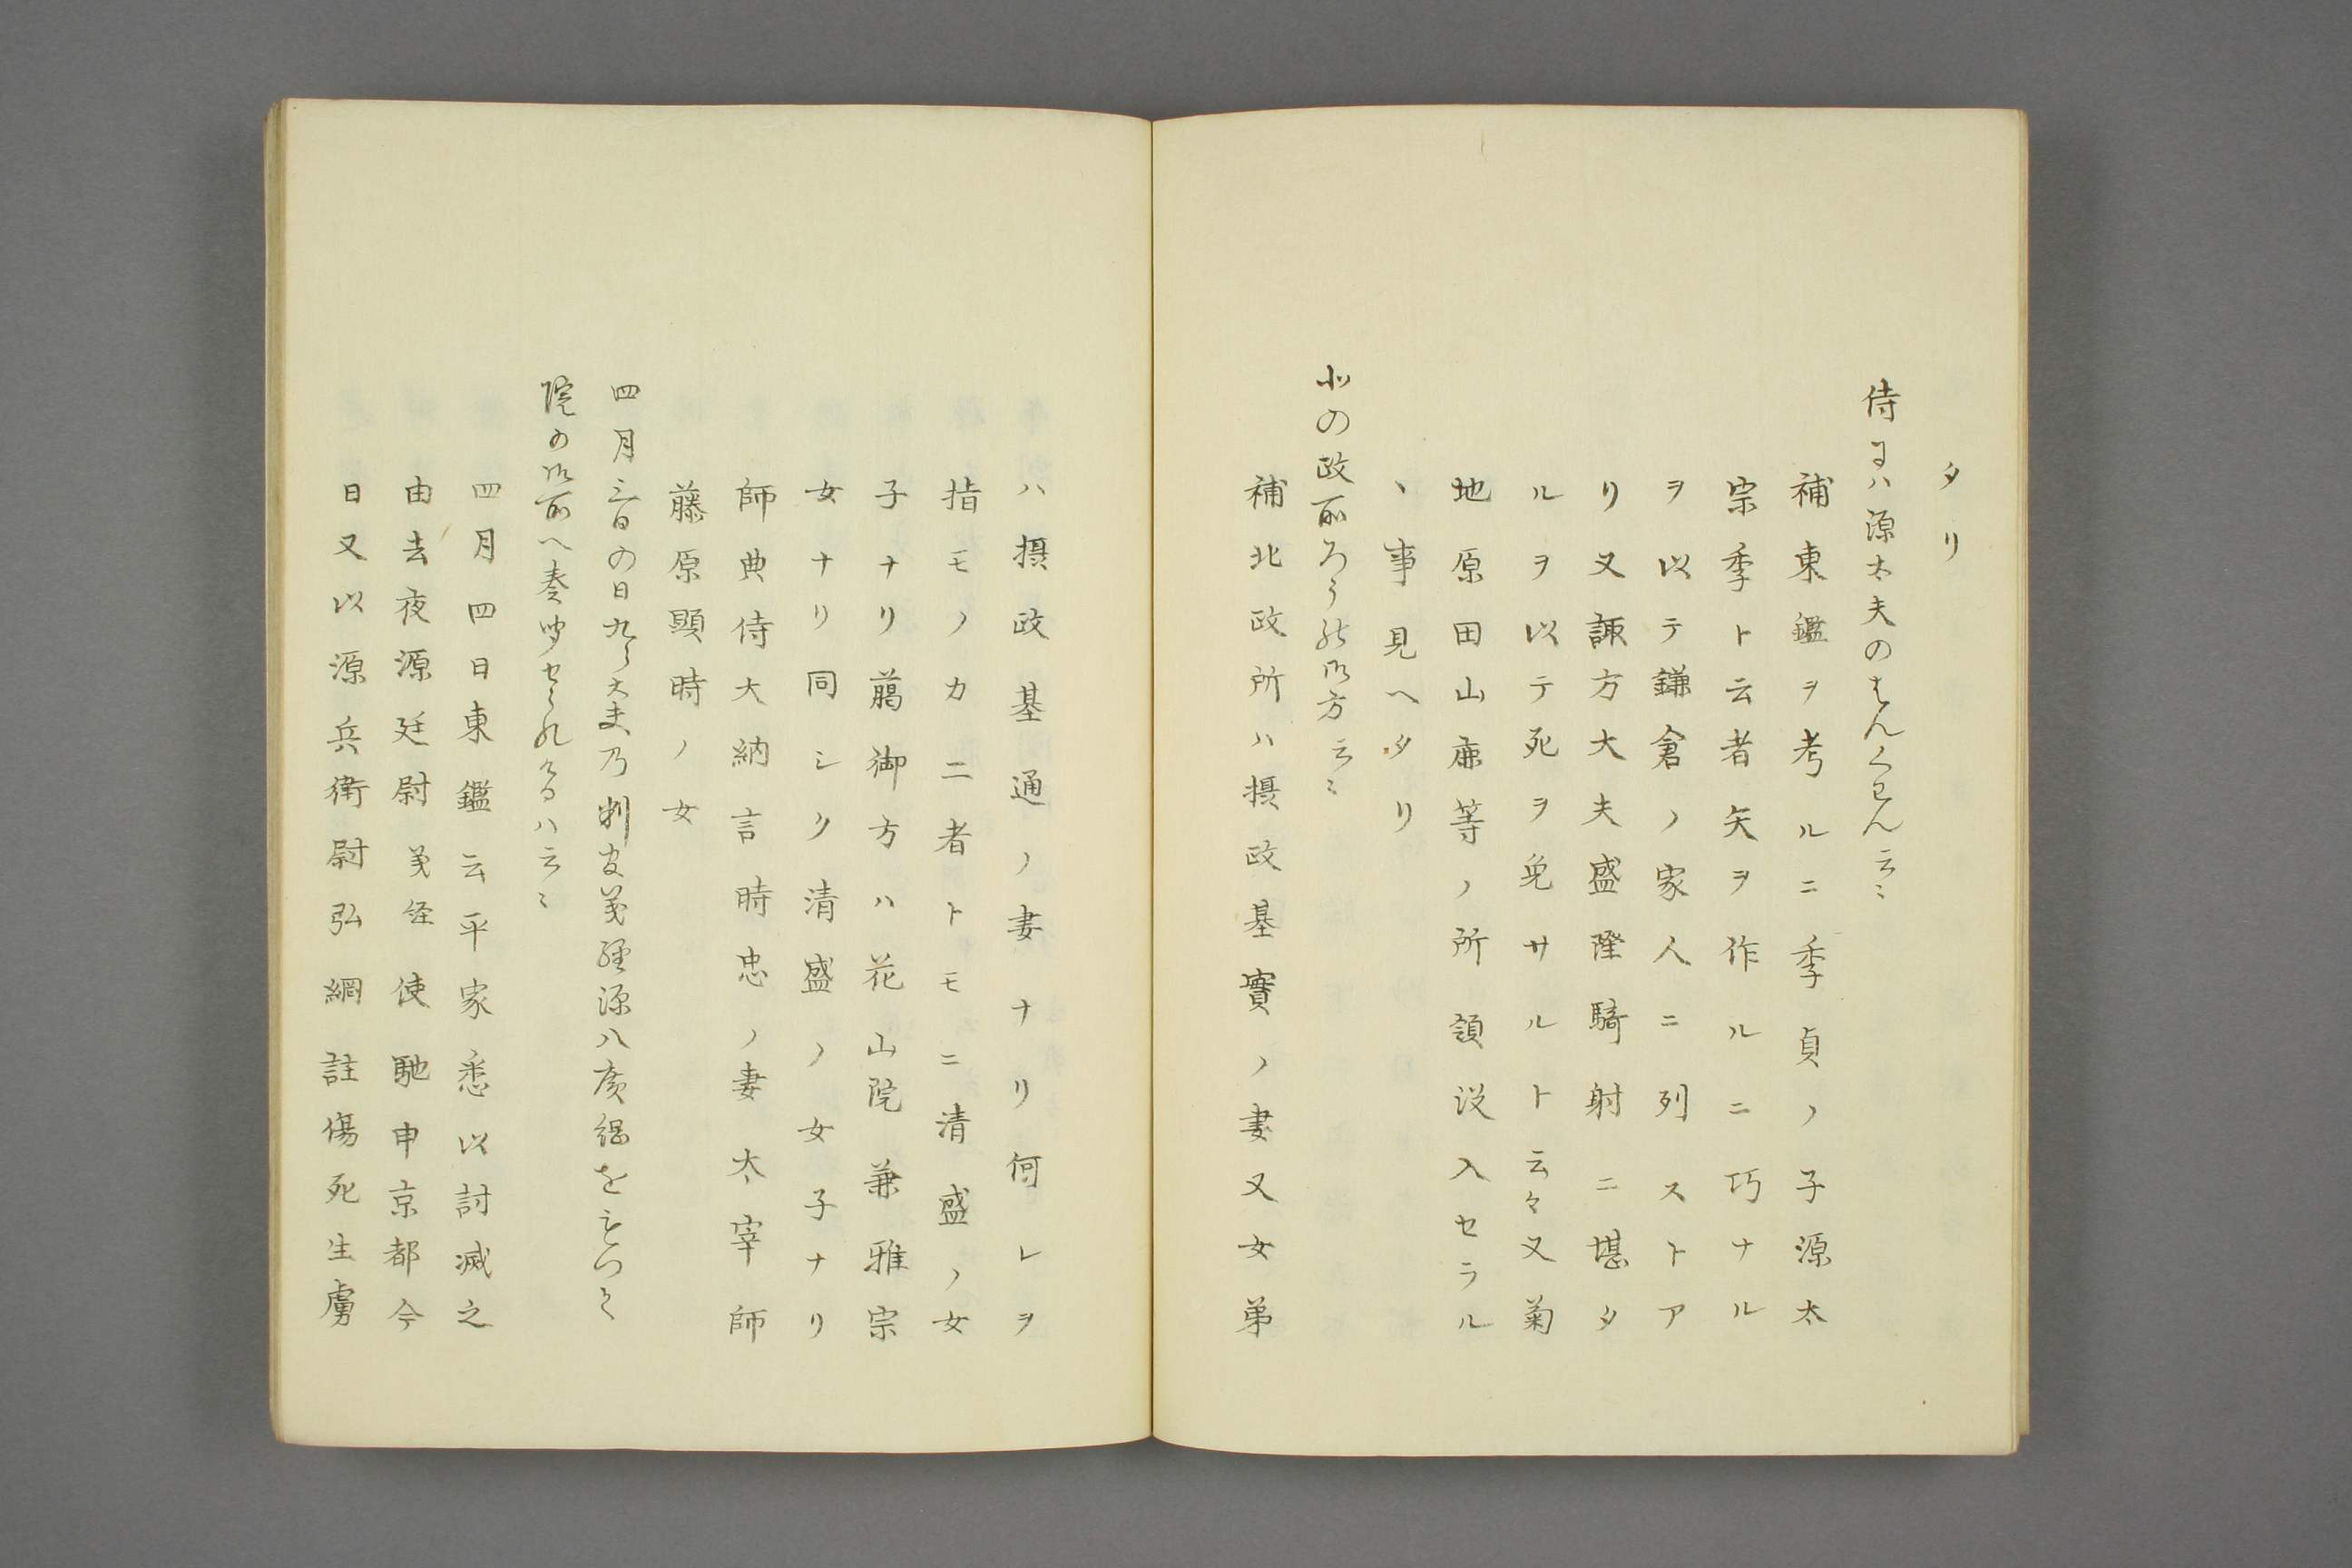 タリ
侍にハ源太夫のはんくわん云〻
補東鑑ヲ考ルニ季貞ノ子源太
宗季ト云者矢ヲ作ルニ巧ナル
ヲ以テ鎌倉ノ家人ニ列ストア
リ又諏方大夫盛隆騎射ニ堪タ
ルヲ以テ死ヲ免サルト云々又菊
地原田山鹿等ノ所領没入セラル
ヽ事見ヘタリ
北の政所ろうの御方云〻
補北政所ハ摂政基實ノ妻又女弟
ハ摂政基通ノ妻ナリ何レヲ
指モノカ二者トモニ清盛ノ女
子ナリ﨟御方ハ花山院兼雅宗
女ナリ同シク清盛ノ女子ナリ
師典侍大納言時忠ノ妻太宰師
藤原顕時ノ女
四月三日の日九らう大夫乃判官義經源八廣綱をもつて
院の御所へ奏聞せられけるハ云〻
四月四日東鑑云平家悉以討滅之
由去夜源廷尉義経使馳申京都今
日又以源兵衛尉弘綱註傷死生虜